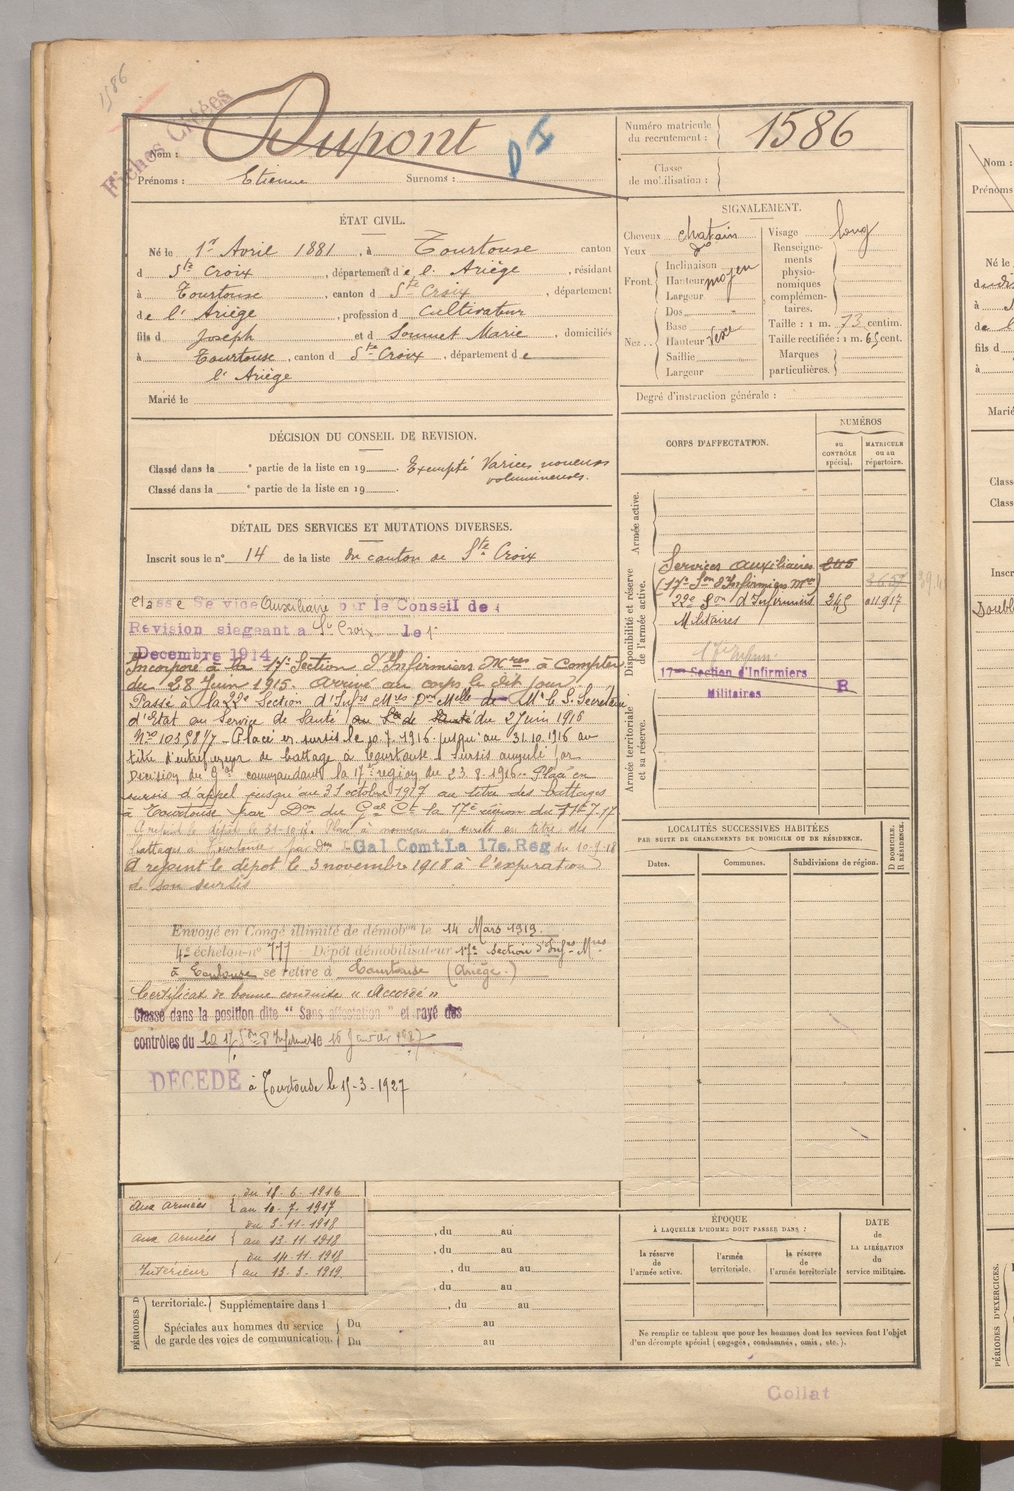 1586
Fiches Créées
Nom : Dupont
Prénoms : Etienne Surnoms :
Numéro matricule du recrutement : 1586
Classe de mobilisation :
ÉTAT CIVIL.
Né le 1er Avril 1881, à Tourtouse canton
d Ste Croix, département de l'Ariège, résidant
à Tourtouse, canton d Ste Croix, département
de l'Ariège, profession d Cultivateur
fils d Joseph et d Marie, domiciliés
à Tourtouse, canton d Ste Croix, département de
l'Ariège
Marié le
SIGNALEMENT.
Cheveux chatain
Yeux do
Front. Inclinaison
Hauteur moyen
Largeur
Nez.. Dos
Base
Hauteur
Saillie
Largeur
Visage long
Renseignements physionomiques complémentaires.
Taille : 1 m. 73 centim.
Taille rectifiée : 1 m. 65 cent.
Marques particulières.
Degré d'instruction générale :
DÉCISION DU CONSEIL DE REVISION.
Classé dans la e partie de la liste en 19 Exempté Varices noueuses
Classé dans la e partie de la liste en 19 volumineuses.
DÉTAIL DES SERVICES ET MUTATIONS DIVERSES.
Inscrit sous le n° 14 de la liste du canton de Ste Croix
Classé Service Auxiliaire par le Conseil de
Révision siégeant à St Croix le 1
Decembre 1914
Incorporé à la 17e Section d'Infirmiers Mres à Compter
du 28 Juin 1915. Arrivé au corps le dit jour
Passé à la 22e Section d'Infrs Mres Don Melle de Mr le S. Secretaire
d'Etat au Service de Santé du 2 Juin 1916
Placé en sursis le 10.7.1916 jusqu'au 31.10.1916 au
titre d'entrepreneur de battage à Tourtouse Sursis annulé par
Décision du Gal commandant la 17e région du 23.8.1916. Placé en
sursis d'appel jusqu'au 31 octobre 1917 au titre des battages
à Tourtouse par Don du Gal Ct la 17e région du
A rejoint le dépôt le Placé à nouveau en sursis au titre des
battages à Tourtouse par Don Gal Comt. La 17e. Reg du
A rejoint le dépot le 3 novembre 1918 à l'expiration
de son sursis
Envoyé en Congé illimité de démobon le 14 Mars 1919.
4e échelon n° 777 Dépôt démobilisateur 17e Section d'Infrs Mres
à Toulouse se retire à Tourtouse (Ariège.)
Certificat de bonne conduite « Accordé »
Classé dans la position dite " Sans affectation " et rayé des
contrôles du la 17e Son d'Infirmiers le 16 Janvier
DECEDE à Tourtouse le 15-3-1927
CORPS D'AFFECTATION.
NUMÉROS
au CONTRÔLE spécial.
MATRICULE ou au répertoire.
Armée active.
Disponibilité et réserve de l'armée active.
Services auxiliaires 245
(17e Son d'Infirmiers Mres)
22e Son d'Infirmiers 245 011917
Militaires
17me Section d'Infirmiers
Militaires R
Armée territoriale et sa réserve.
LOCALITÉS SUCCESSIVES HABITÉES
PAR SUITE DE CHANGEMENTS DE DOMICILE OU DE RÉSIDENCE.
Dates.
Communes.
Subdivisions de région.
D DOMICILE. R RÉSIDENCE.
du 18.6.1916
Aux armées au 10.7.1917
du 3.11.1918
Aux armées au 13.11.1918
du 14.11.1918
Intérieur au 13.3.1919.
, du au
, du au
, du au
, du au
territoriale. Supplémentaire dans l , du au
Spéciales aux hommes du service Du au
de garde des voies de communication. Du au
ÉPOQUE
À LAQUELLE L'HOMME DOIT PASSER DANS :
la réserve de l'armée active.
l'armée territoriale.
la réserve de l'armée territoriale
DATE de LA LIBÉRATION du service militaire.
Ne remplir ce tableau que pour les hommes dont les services font l'objet
d'un décompte spécial (engagés, condamnés, omis, etc.).
Collat
Nom :
Prénoms
Né le
fils d
Marié
Class
Class
Inscr
PÉRIODES D'EXERCICES.